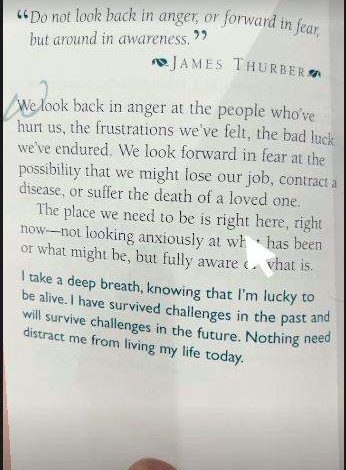 “Do not look back in anger, or forward in fear,
but around in awareness.”
JAMES THURBER
We look back in anger at the people who’ve
hurt us, the frustrations we’ve felt, the bad luck
we’ve endured. We look forward in fear at the
possibility that we might lose our job, contract a
disease, or suffer the death of a loved one.
The place we need to be is right here, right
now—not looking anxiously at what has been
or what might be, but fully aware of what is.
I take a deep breath, knowing that I’m lucky to
be alive. I have survived challenges in the past and
will survive challenges in the future. Nothing need
distract me from living my life today.